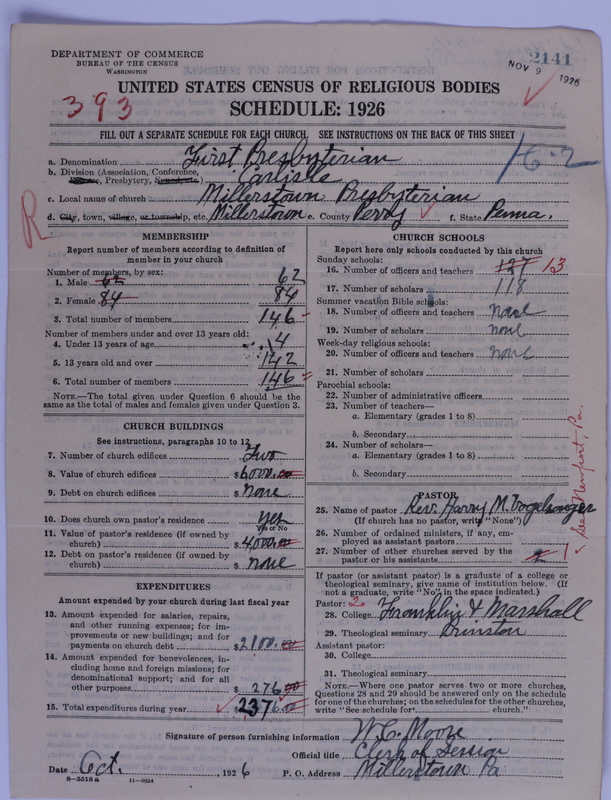 DEPARTMENT OF COMMERCE
BUREAU OF THE CENSUS
WASHINGTON
2141
NOV 9 1926
UNITED STATES CENSUS OF RELIGIOUS BODIES
393
SCHEDULE: 1926
FILL OUT A SEPARATE SCHEDULE FOR EACH CHURCH. SEE INSTRUCTIONS ON THE BACK OF THIS SHEET
16-2
a. Denomination First Presbyterian
b. Division (Association, Conference, Diocese, Presbytery, Synod, etc.) Carlisle
c. Local name of church Millerstown Presbyterian
d. City, town, village, or township, etc. Millerstown e. County Perry f. State Penna.
R
MEMBERSHIP
Report number of members according to definition of
member in your church
Number of members, by sex:
1. Male 62 62
2. Female 84 84
3. Total number of members 146
Number of members under and over 13 years old:
4. Under 13 years of age 4
5. 13 years old and over 142
6. Total number of members 146
NOTE.—The total given under Question 6 should be the
same as the total of males and females given under Question 3.
CHURCH BUILDINGS
See instructions, paragraphs 10 to 12
7. Number of church edifices Two
8. Value of church edifices $6000.00
9. Debt on church edifices $ none
10. Does church own pastor's residence yes
Yes or No
11. Value of pastor's residence (if owned by
church) $4,000.00
12. Debt on pastor's residence (if owned by
church) $ none
EXPENDITURES
Amount expended by your church during last fiscal year
13. Amount expended for salaries, repairs,
and other running expenses; for im-
provements or new buildings; and for
payments on church debt $2100.00
14. Amount expended for benevolences, in-
cluding home and foreign missions; for
denominational support; and for all
other purposes $ 276.00
15. Total expenditures during year $2376.00
CHURCH SCHOOLS
Report here only schools conducted by this church
Sunday schools:
16. Number of officers and teachers 127 13
17. Number of scholars 118
Summer vacation Bible schools:
18. Number of officers and teachers none
19. Number of scholars none
Week-day religious schools:
20. Number of officers and teachers none
21. Number of scholars
Parochial schools:
22. Number of administrative officers
23. Number of teachers—
a. Elementary (grades 1 to 8)
b. Secondary
24. Number of scholars—
a. Elementary (grades 1 to 8)
b. Secondary
PASTOR
25. Name of pastor Rev. Harry M. Vogelsonger
(If church has no pastor, write "None")
26. Number of ordained ministers, if any, em-
ployed as assistant pastors
27. Number of other churches served by the
pastor or his assistants 2 1
See Newport, Pa.
If pastor (or assistant pastor) is a graduate of a college or
theological seminary, give name of institution below. (If
not a graduate, write "No" in the space indicated.)
Pastor: 2
28. College Franklin & Marshall
29. Theological seminary Prinston
Assistant pastor:
30. College
31. Theological seminary
NOTE.—Where one pastor serves two or more churches,
Questions 28 and 29 should be answered only on the schedule
for one of the churches; on the schedules for the other churches,
write "See schedule for church."
Signature of person furnishing information W. C. Moore
Official title Clerk of Session
Date Oct. , 1926 P. O. Address Millerstown Pa
8-5518a 11-9054